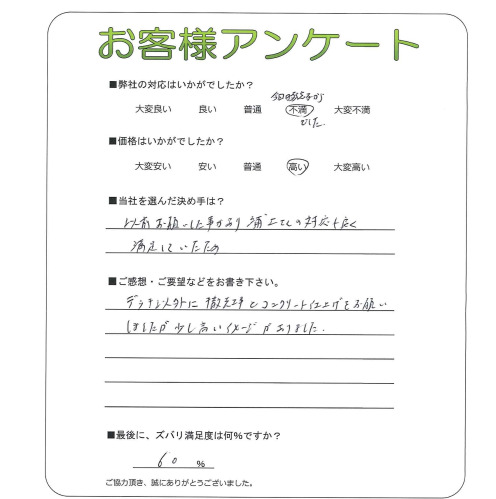 お客様アンケート
■弊社の対応はいかがでしたか?
でした。
大変良い 良い 普通 不満 大変不満
■価格はいかがでしたか?
大変安い 安い 普通 高い 大変高い
■当社を選んだ決め手は?
以前お願いした事があり の対応も良く
満足していたため
■ご感想・ご要望などをお書き下さい。
デッキ以外に 工事とコンクリート仕上げをお願い
しましたが少し高いイメージがありました。
■最後に、ズバリ満足度は何%ですか?
60 %
ご協力頂き、誠にありがとうございました。